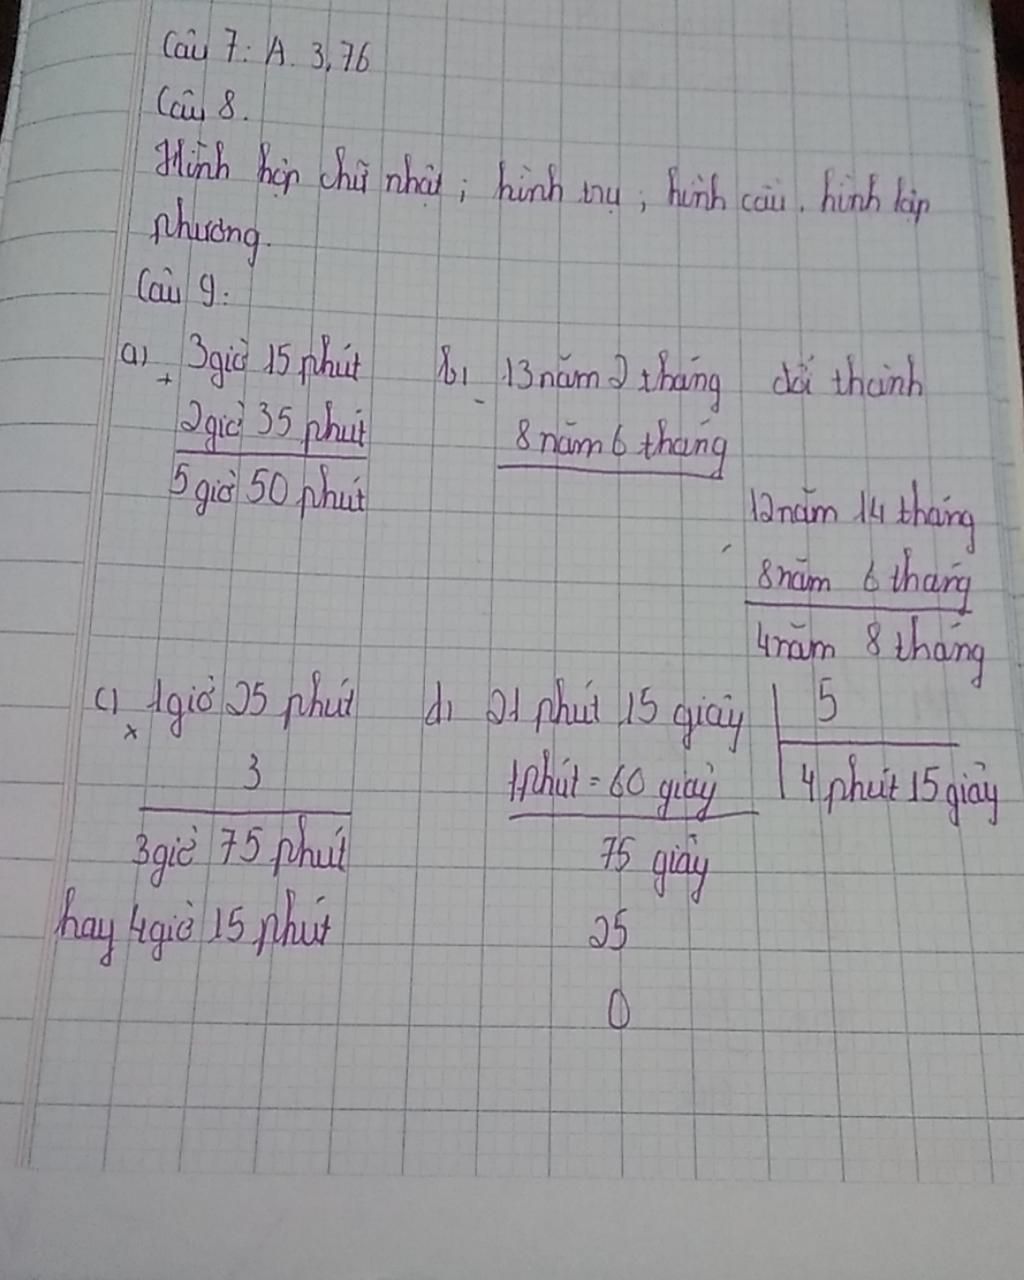 Câu 7: A. 3,76
Câu 8.
Hình hộp chữ nhật; hình trụ; hình cầu. hình lập
phương.
Câu 9:
a) 3giờ 15 phút
+
2giờ 35 phút
5 giờ 50 phút
b) 13 năm 2 tháng đổi thành
-
8 năm 6 tháng
12 năm 14 tháng
-
8 năm 6 tháng
4 năm 8 tháng
c) 1giờ 25 phút
x
3
3giờ 75 phút
hay 4giờ 15 phút
d) 21 phút 15 giây 5
1phút = 60 giây 4 phút 15 giây
75 giây
25
0